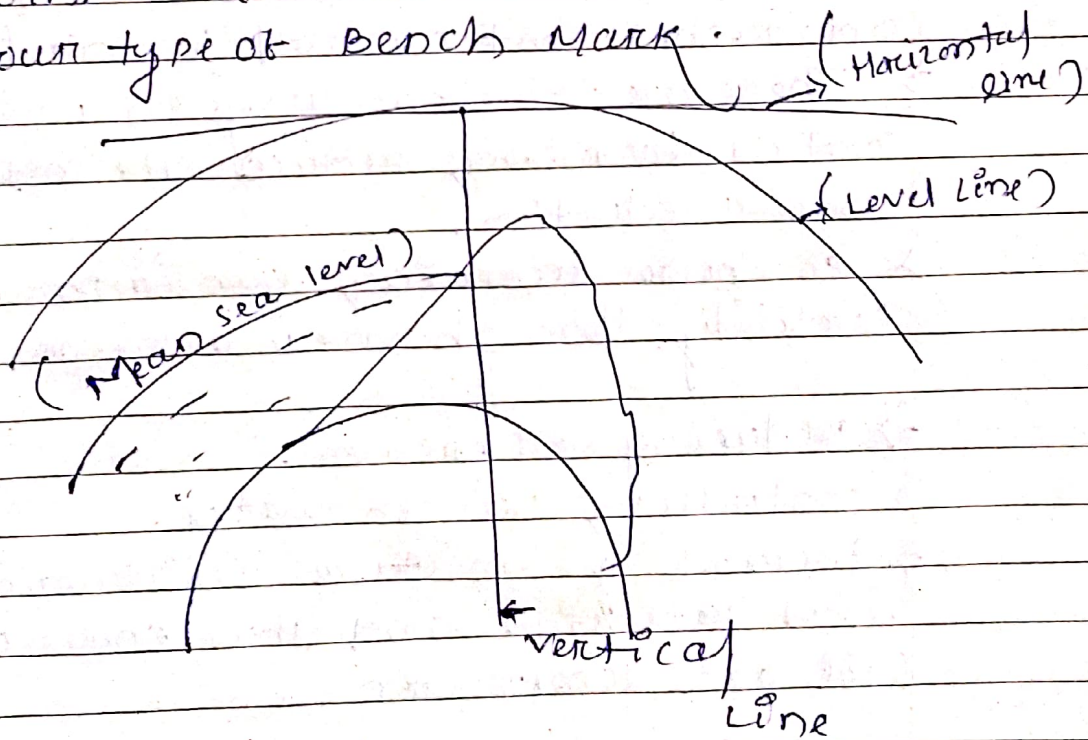 our type of Bench Mark.
(Horizontal
Line)
(Level Line)
(Mean sea level)
Vertical
Line